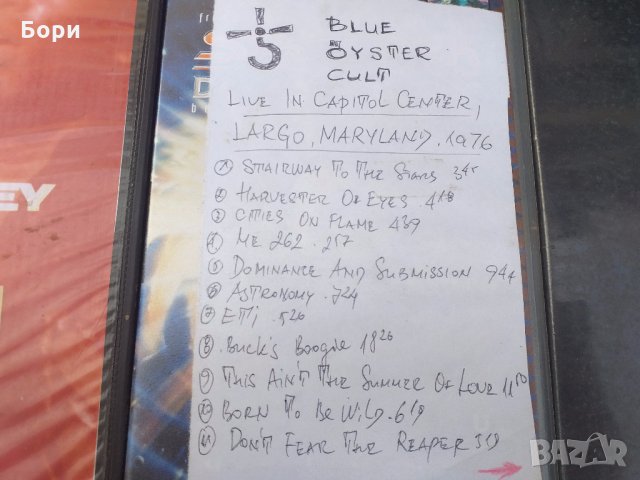 Бори
BLUE
ÖYSTER
CULT
LIVE IN CAPITOL CENTER,
LARGO, MARYLAND, 1976
1 STAIRWAY TO THE STARS 345
2 HARVESTER OF EYES 418
3 CITIES ON FLAME 439
4 ME 262. 257
5 DOMINANCE AND SUBMISSION 944
6 ASTRONOMY. 724
7 ETI. 520
8 BUCK'S BOOGIE 1820
9 THIS AIN'T THE SUMMER OF LOVE 1150
10 BORN TO BE WILD. 619
11 DON'T FEAR THE REAPER 519
EY
BAZAR